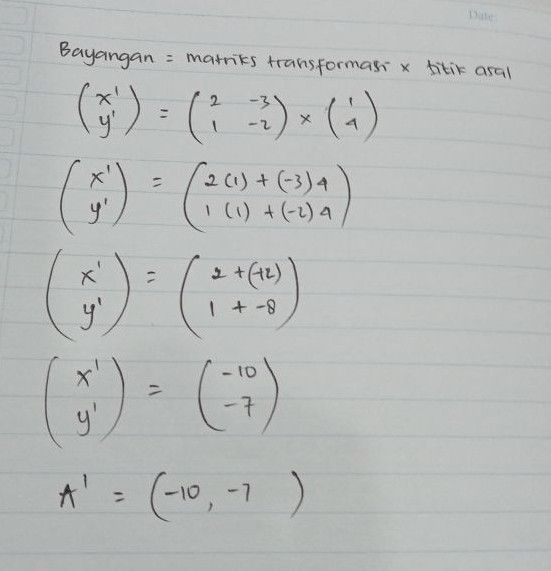 Date:
Bayangan = matriks transformasi × titik asal
(x' y') = (2 -3 1 -2) × (1 4)
(x' y') = (2(1) + (-3)4 1(1) + (-2)4)
(x' y') = (2 + (-12) 1 + -8)
(x' y') = (-10 -7)
A' = (-10, -7)